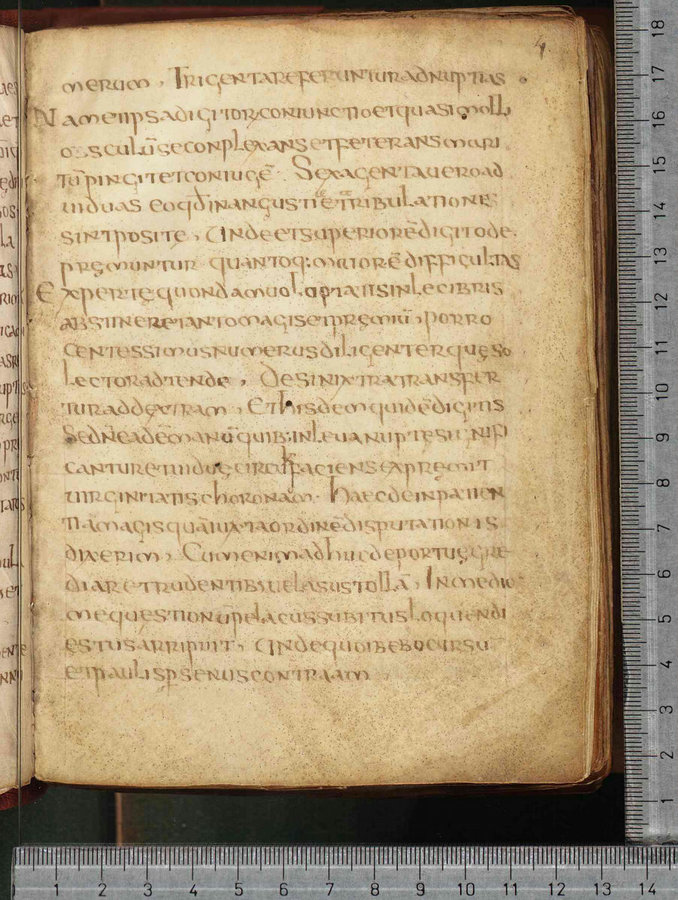 merum, Trigenta referuntur ad nuptias.
Nam et ipsa digitorum coniunctio et quasi molli
osculū se conplexans et feterans mari
tū pingit et coniugē. Sexagenta uero ad
uiduas eo qđ in angusti et tribulationes
sint posite, Unde et superiorē digito de
pręmuntur quantoq: maiorē difficultas
Expertę quondam uoluptatis inlecibris
abstinere tanto magis et pręmiū, porro
centessimus numerus diligenter quęso
lector adtende, Desinixtra transfer
tur ad dextram, Et hisdem quidē digitis
Sed nē eadē manū quib: in leua nupte signifi
cantur et uiduę circulū faciens expręmit
uirginitatis choronam. Haec de inpatien
tiā magis quā iuxta ordinē disputationis
dixerim, Cum enim adhuc de portu ęgre
diar et rudentibus uela sustollā, In medio
me questionū pelacus subitus loquendi
ęstus arripuit, Unde quoibebo cursu
et paulisꝑ senus contraam